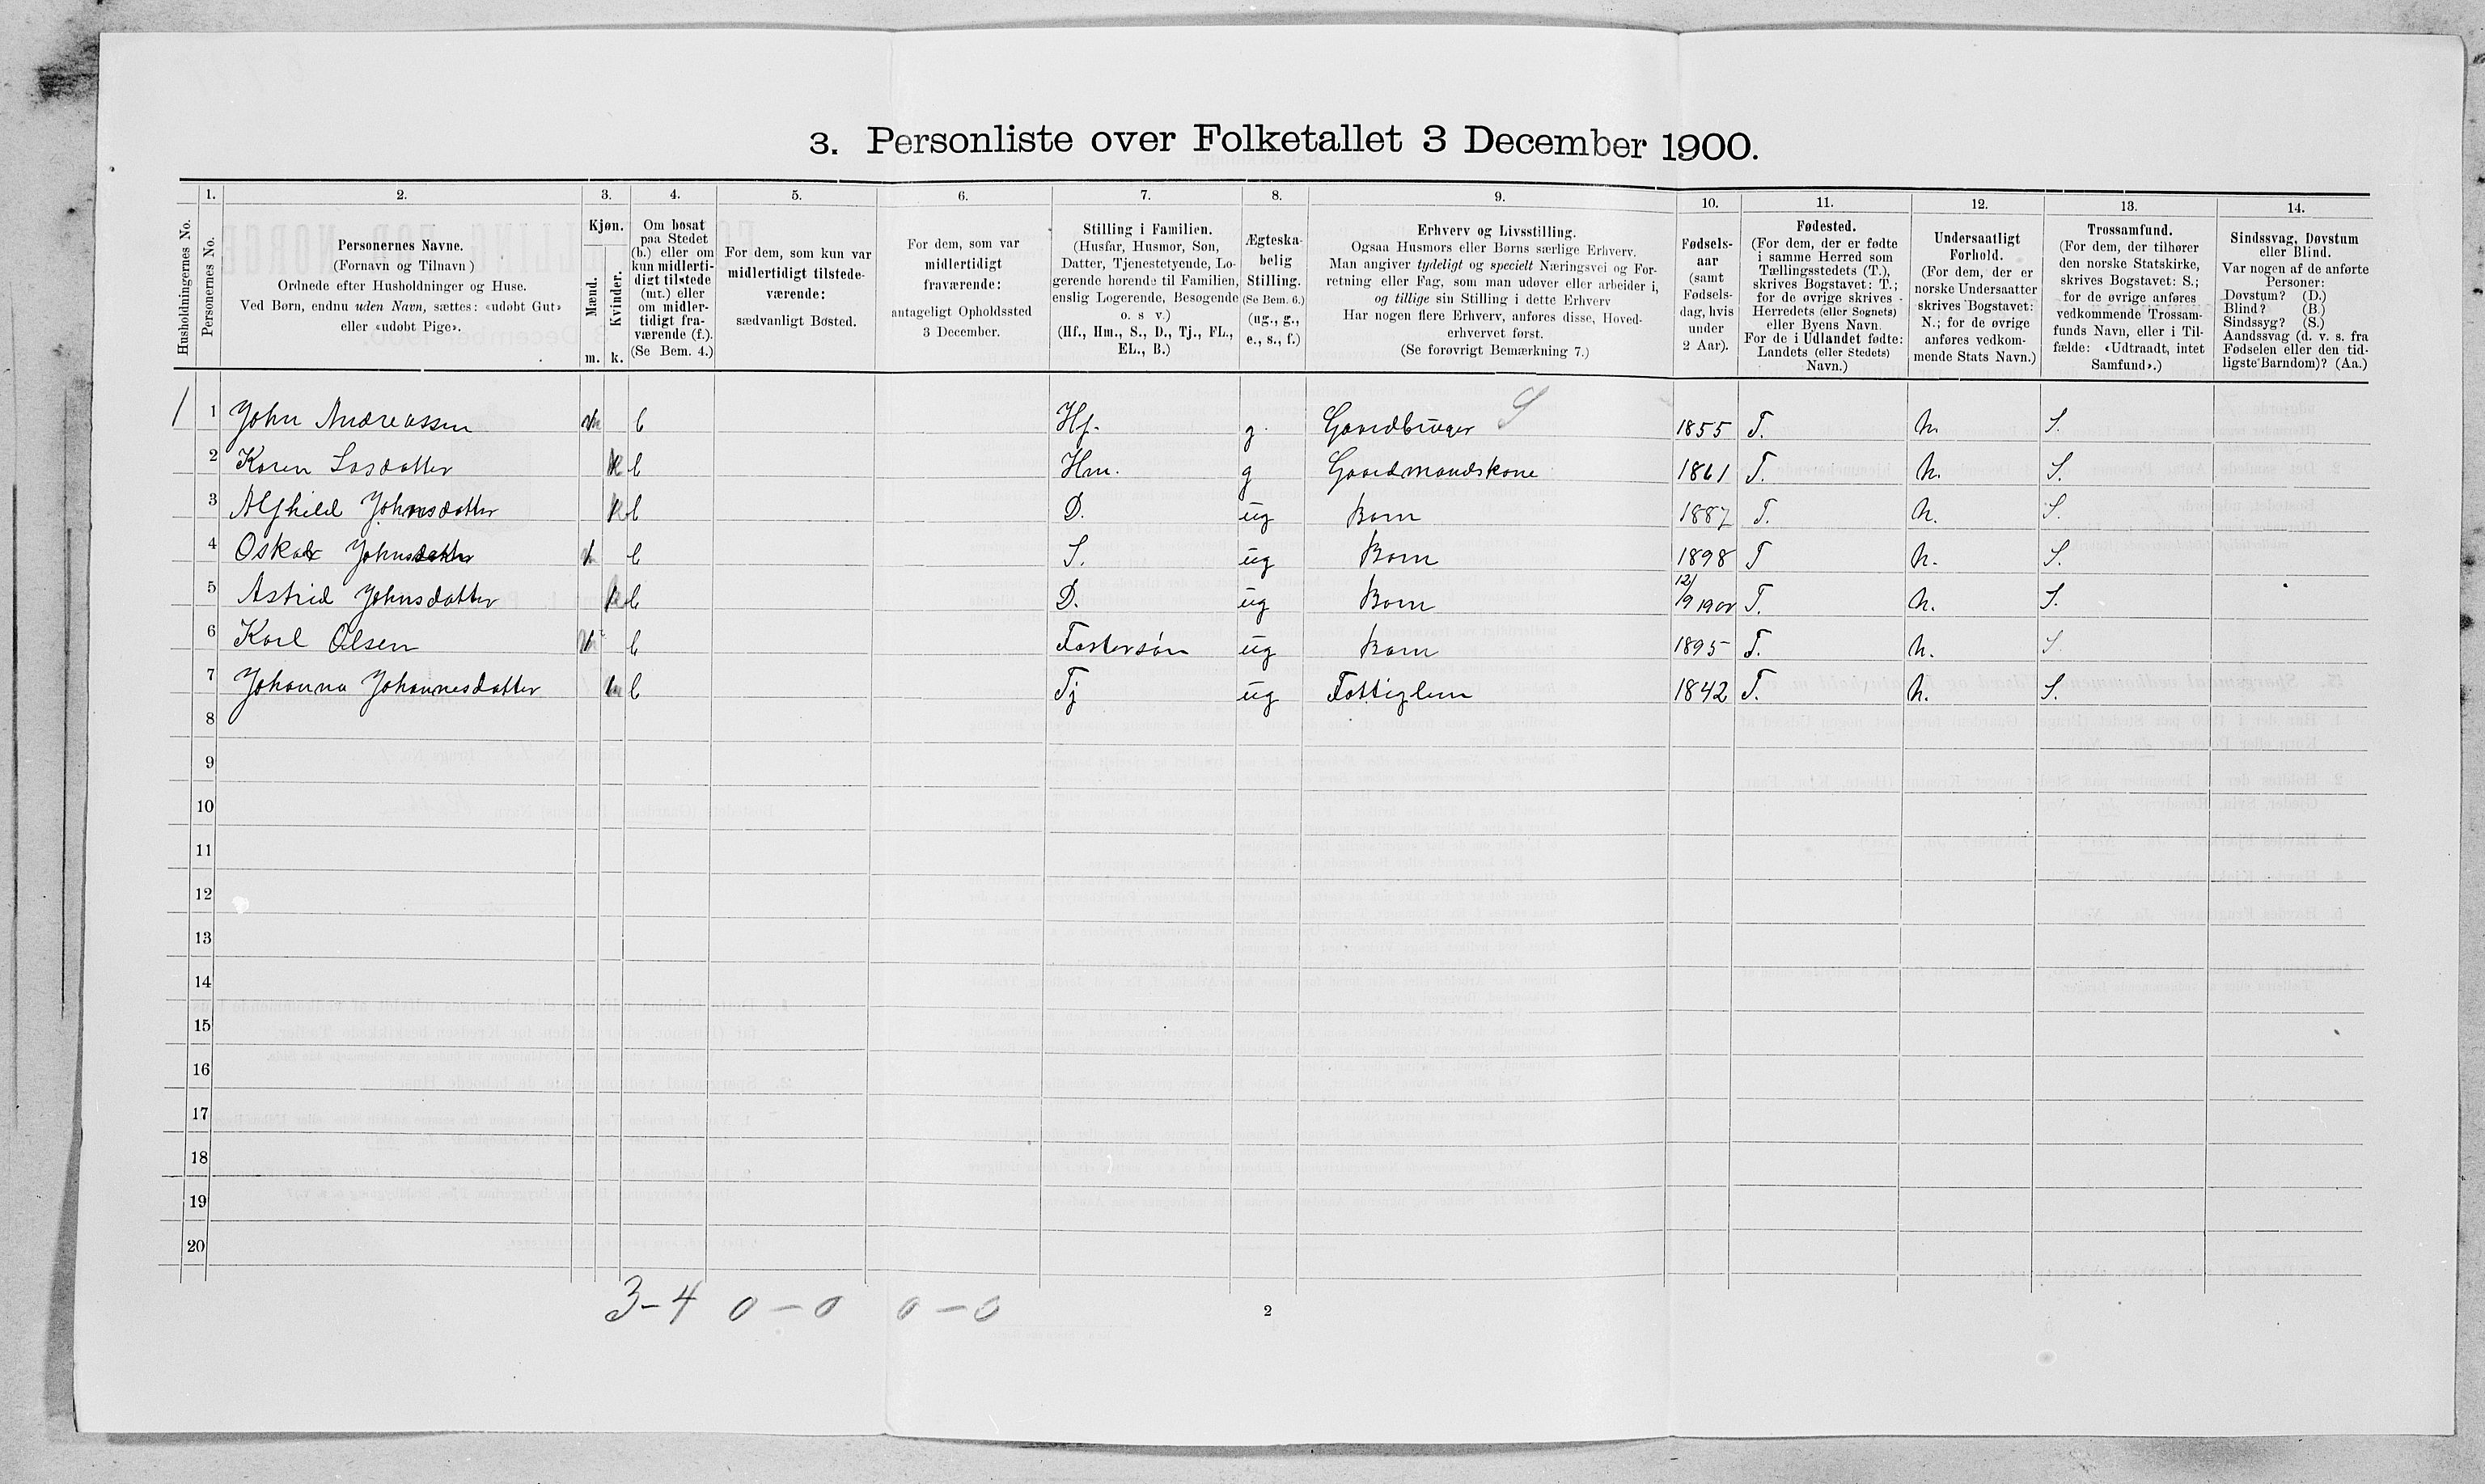 3. Personliste over Folketallet 3 December 1900.
Husholdningernes No.
1.
Personernes No.
2.
Personernes Navne.
(Fornavn og Tilnavn)
Ordnede efter Husholdninger og Huse.
Ved Børn, endnu uden Navn, sættes: «udøbt Gut»
eller «udøbt Pige».
3.
Kjøn.
Mænd.
Kvinder.
m. k.
4.
Om bosat
paa Stedet
(b.) eller om
kun midlerti-
digt tilstede
(mt.) eller
om midler-
tidigt fra-
værende (f.).
(Se Bem. 4.)
5.
For dem, som kun var
midlertidigt tilstede-
værende:
sædvanligt Bosted.
6.
For dem, som var
midlertidigt
fraværende:
antageligt Opholdssted
3 December.
7.
Stilling i Familien.
(Husfar, Husmor, Søn,
Datter, Tjenestetyende, Lo-
gerende hørende til Familien,
enslig Logerende, Besøgende
o. s v.)
(Hf., Hm., S., D., Tj., FL.,
EL., B.)
8.
Ægteska-
belig
Stilling.
(Se Bem. 6.)
(ug., g.,
e., s., f.)
9.
Erhverv og Livsstilling.
Ogsaa Husmors eller Børns særlige Erhverv.
Man angiver tydeligt og specielt Næringsvei og For-
retning eller Fag, som man udøver eller arbeider i,
og tillige sin Stilling i dette Erhverv
Har nogen flere Erhverv, anføres disse, Hoved-
erhvervet først.
(Se forøvrigt Bemærkning 7.)
10.
Fødsels-
aar
(samt
Fødsels-
dag, hvis
under
2 Aar).
11.
Fødested.
(For dem, der er fødte
i samme Herred som
Tællingsstedets (T.),
skrives Bogstavet: T.;
for de øvrige skrives
Herredets (eller Sognets)
eller Byens Navn.
For de i Udlandet fødte:
Landets (eller Stedets)
Navn.)
12.
Undersaatligt
Forhold.
(For dem, der er
norske Undersaatter
skrives Bogstavet:
N.; for de øvrige
anføres vedkom-
mende Stats Navn.)
13.
Trossamfund.
(For dem, der tilhører
den norske Statskirke,
skrives Bogstavet: S.;
for de øvrige anføres
vedkommende Trossam-
funds Navn, eller i Til-
fælde: «Udtraadt, intet
Samfund».)
14.
Sindssvag, Døvstum
eller Blind.
Var nogen af de anførte
Personer:
Døvstum? (D.)
Blind? (B.)
Sindssyg? (S.)
Aandssvag (d. v. s. fra
Fødselen eller den tid-
ligste Barndom)? (Aa.)
1 1 John Andreassen m b Hf. g. Gaardbruger S 1855 T. n. S.
2 Karen Lasdatter k b Hm. g Gaardmandskone 1861 T. n. S.
3 Alfhild Johnsdatter k b D. ug Barn 1887 T. n. S.
4 Oskar Johnsdatter m b S. ug Barn 1898 T n. S.
5 Astrid Johnsdatter k b D. ug Barn 12/9 1900 T. n. S.
6 Karl Olsen m b Fostersøn ug Barn 1895 T. n. S.
7 Johanna Johannesdatter k b Tj ug Fattiglem 1842 T. n. S.
8
9
10
11
12
13
14
15
16
17
18
19
20
3-4 0-0 0-0
2